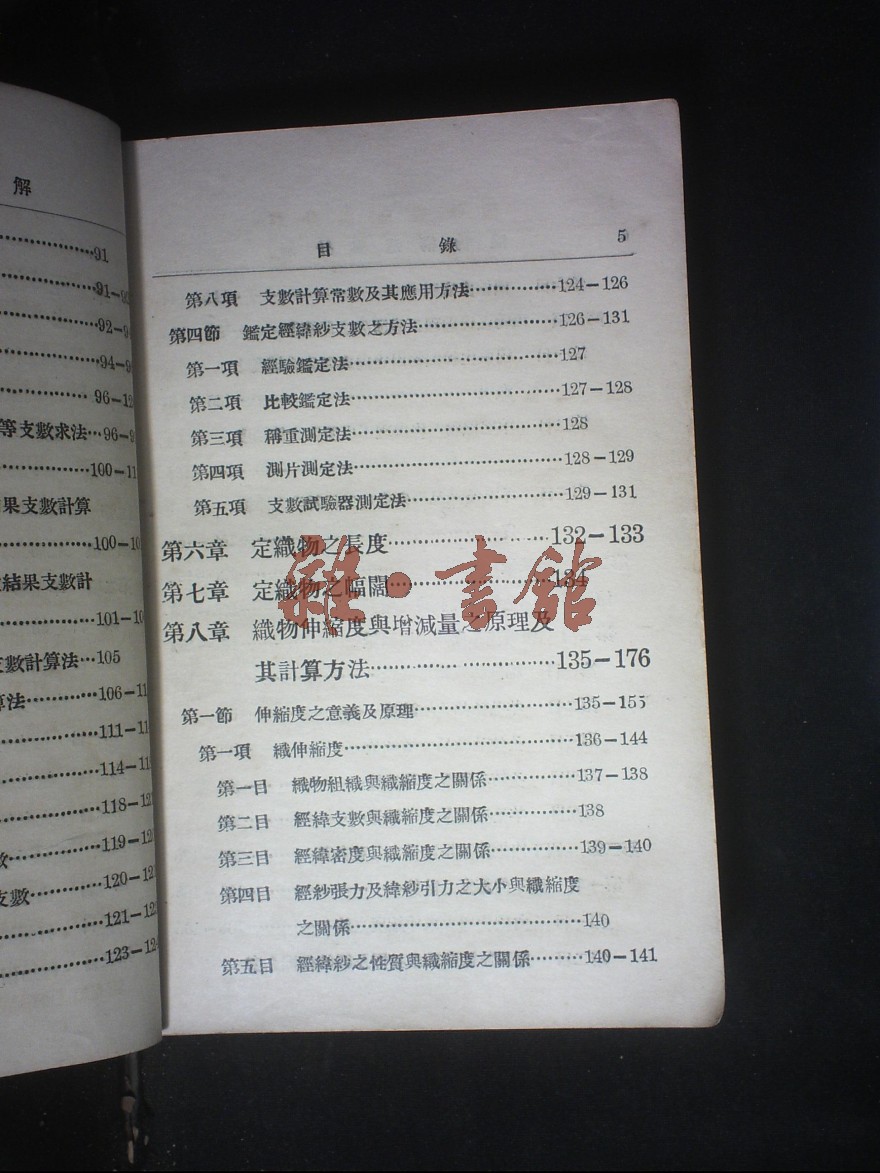 解
91
91-9
92-9
94-9
96-12
等支數求法…96-9
100-11
果支數計算
100-10
結果支數計
101-10
支數計算法…105
算法…106-11
111-11
114-11
118-12
數…119-12
支數…120-12
121-12
123-12
目 錄 5
第八項 支數計算常數及其應用方法…124-126
第四節 鑑定經緯紗支數之方法…126-131
第一項 經驗鑑定法…127
第二項 比較鑑定法…127-128
第三項 稱重測定法…128
第四項 測片測定法…128-129
第五項 支數試驗器測定法…129-131
第六章 定織物之長度…132-133
第七章 定織物之幅闊…134
第八章 織物伸縮度與增減量之原理及
其計算方法…135-176
第一節 伸縮度之意義及原理…135-155
第一項 織伸縮度…136-144
第一目 織物組織與織縮度之關係…137-138
第二目 經緯支數與織縮度之關係…138
第三目 經緯密度與織縮度之關係…139-140
第四目 經紗張力及緯紗引力之大小與織縮度
之關係…140
第五目 經緯紗之性質與織縮度之關係…140-141
雜·書館